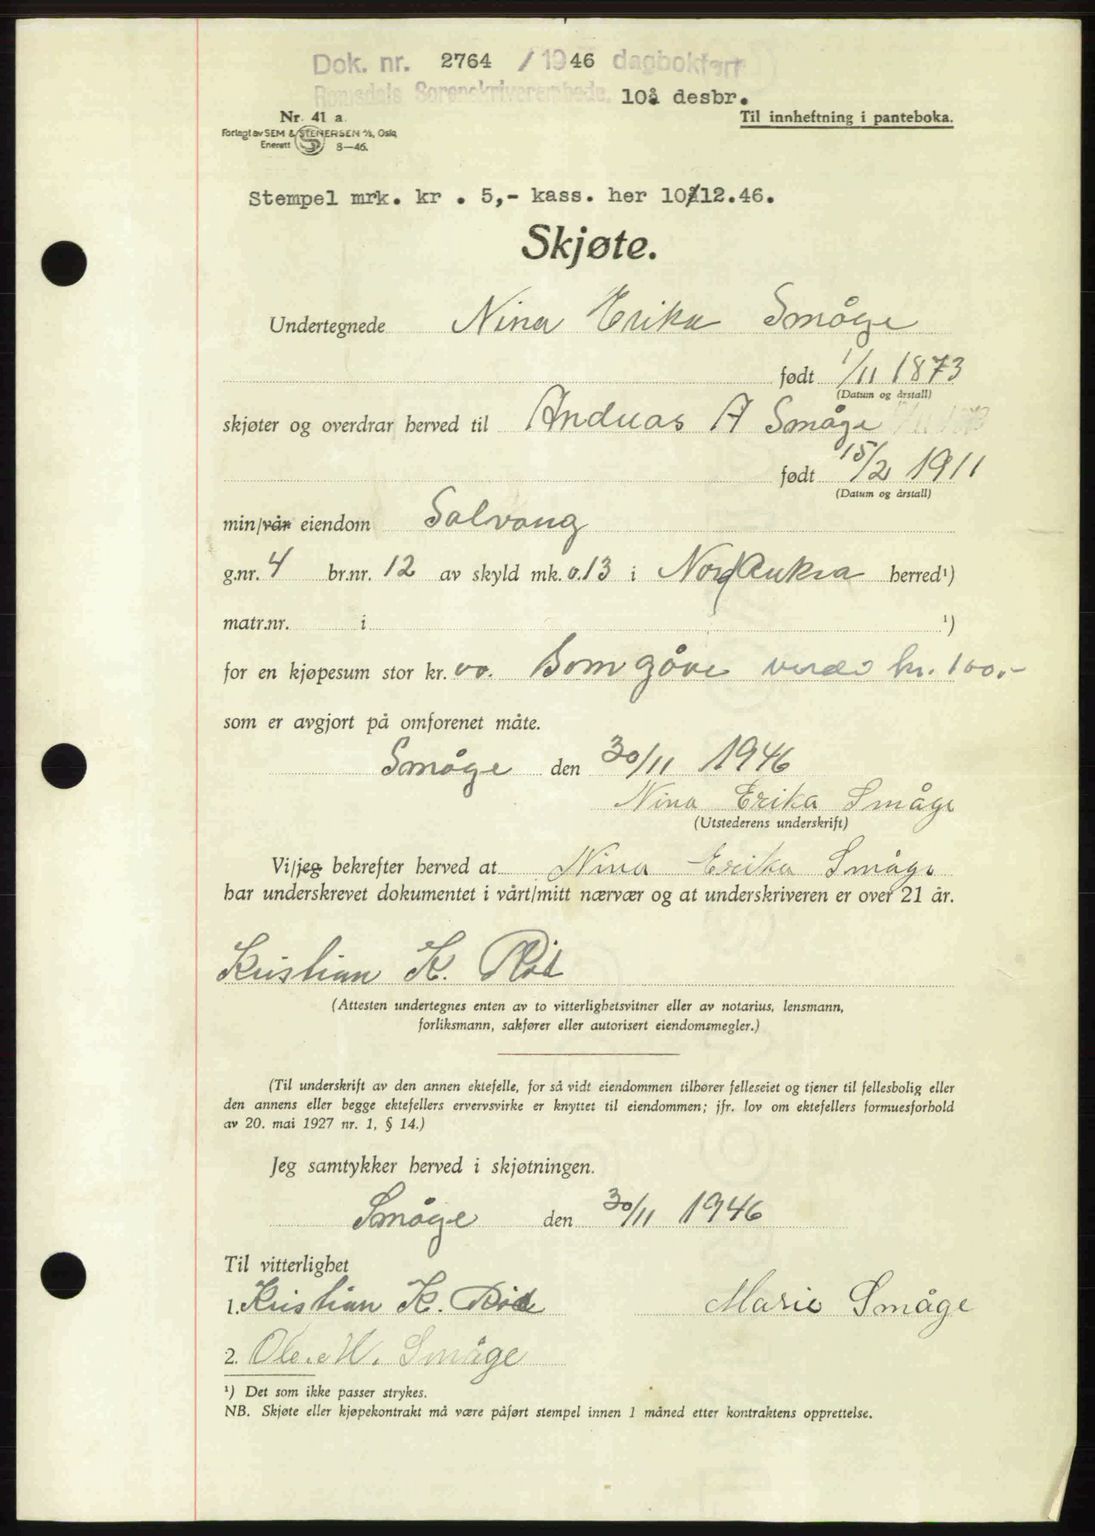 Dok. nr. 2764 / 1946 dagbokført
Romsdals Sorenskriverembede. 10å desbr.
Nr. 41 a.
Til innheftning i panteboka.
Forlagt av SEM & STENERSEN A/S, Oslo
Enerett 8—46.
Stempel mrk. kr . 5,- kass. her 10/12.46.
Skjøte.
Undertegnede Nina Erika Småge
født 1/11 1873
(Datum og årstall)
skjøter og overdrar herved til Andreas A Småge
født 15/2 1911
(Datum og årstall)
min/vår eiendom Solvang
g.nr. 4 br.nr. 12 av skyld mk. 0.13 i Nord Aukra herred¹)
matr.nr. i ¹)
for en kjøpesum stor kr. 00. Som gåve verdi kr. 100.-
som er avgjort på omforenet måte.
Småge den 30/11 1946
Nina Erika Småge
(Utstederens underskrift)
Vi/jeg bekrefter herved at Nina Erika Småge
har underskrevet dokumentet i vårt/mitt nærvær og at underskriveren er over 21 år.
Kristian K. Röd
(Attesten undertegnes enten av to vitterlighetsvitner eller av notarius, lensmann,
forliksmann, sakfører eller autorisert eiendomsmegler.)
(Til underskrift av den annen ektefelle, for så vidt eiendommen tilhører felleseiet og tjener til fellesbolig eller
den annens eller begge ektefellers ervervsvirke er knyttet til eiendommen; jfr. lov om ektefellers formuesforhold
av 20. mai 1927 nr. 1, § 14.)
Jeg samtykker herved i skjøtningen.
Småge den 30/11 1946
Til vitterlighet
1. Kristian K. Röd Marie Småge
2. Ole. H. Småge
¹) Det som ikke passer strykes.
NB. Skjøte eller kjøpekontrakt må være påført stempel innen 1 måned etter kontraktens opprettelse.